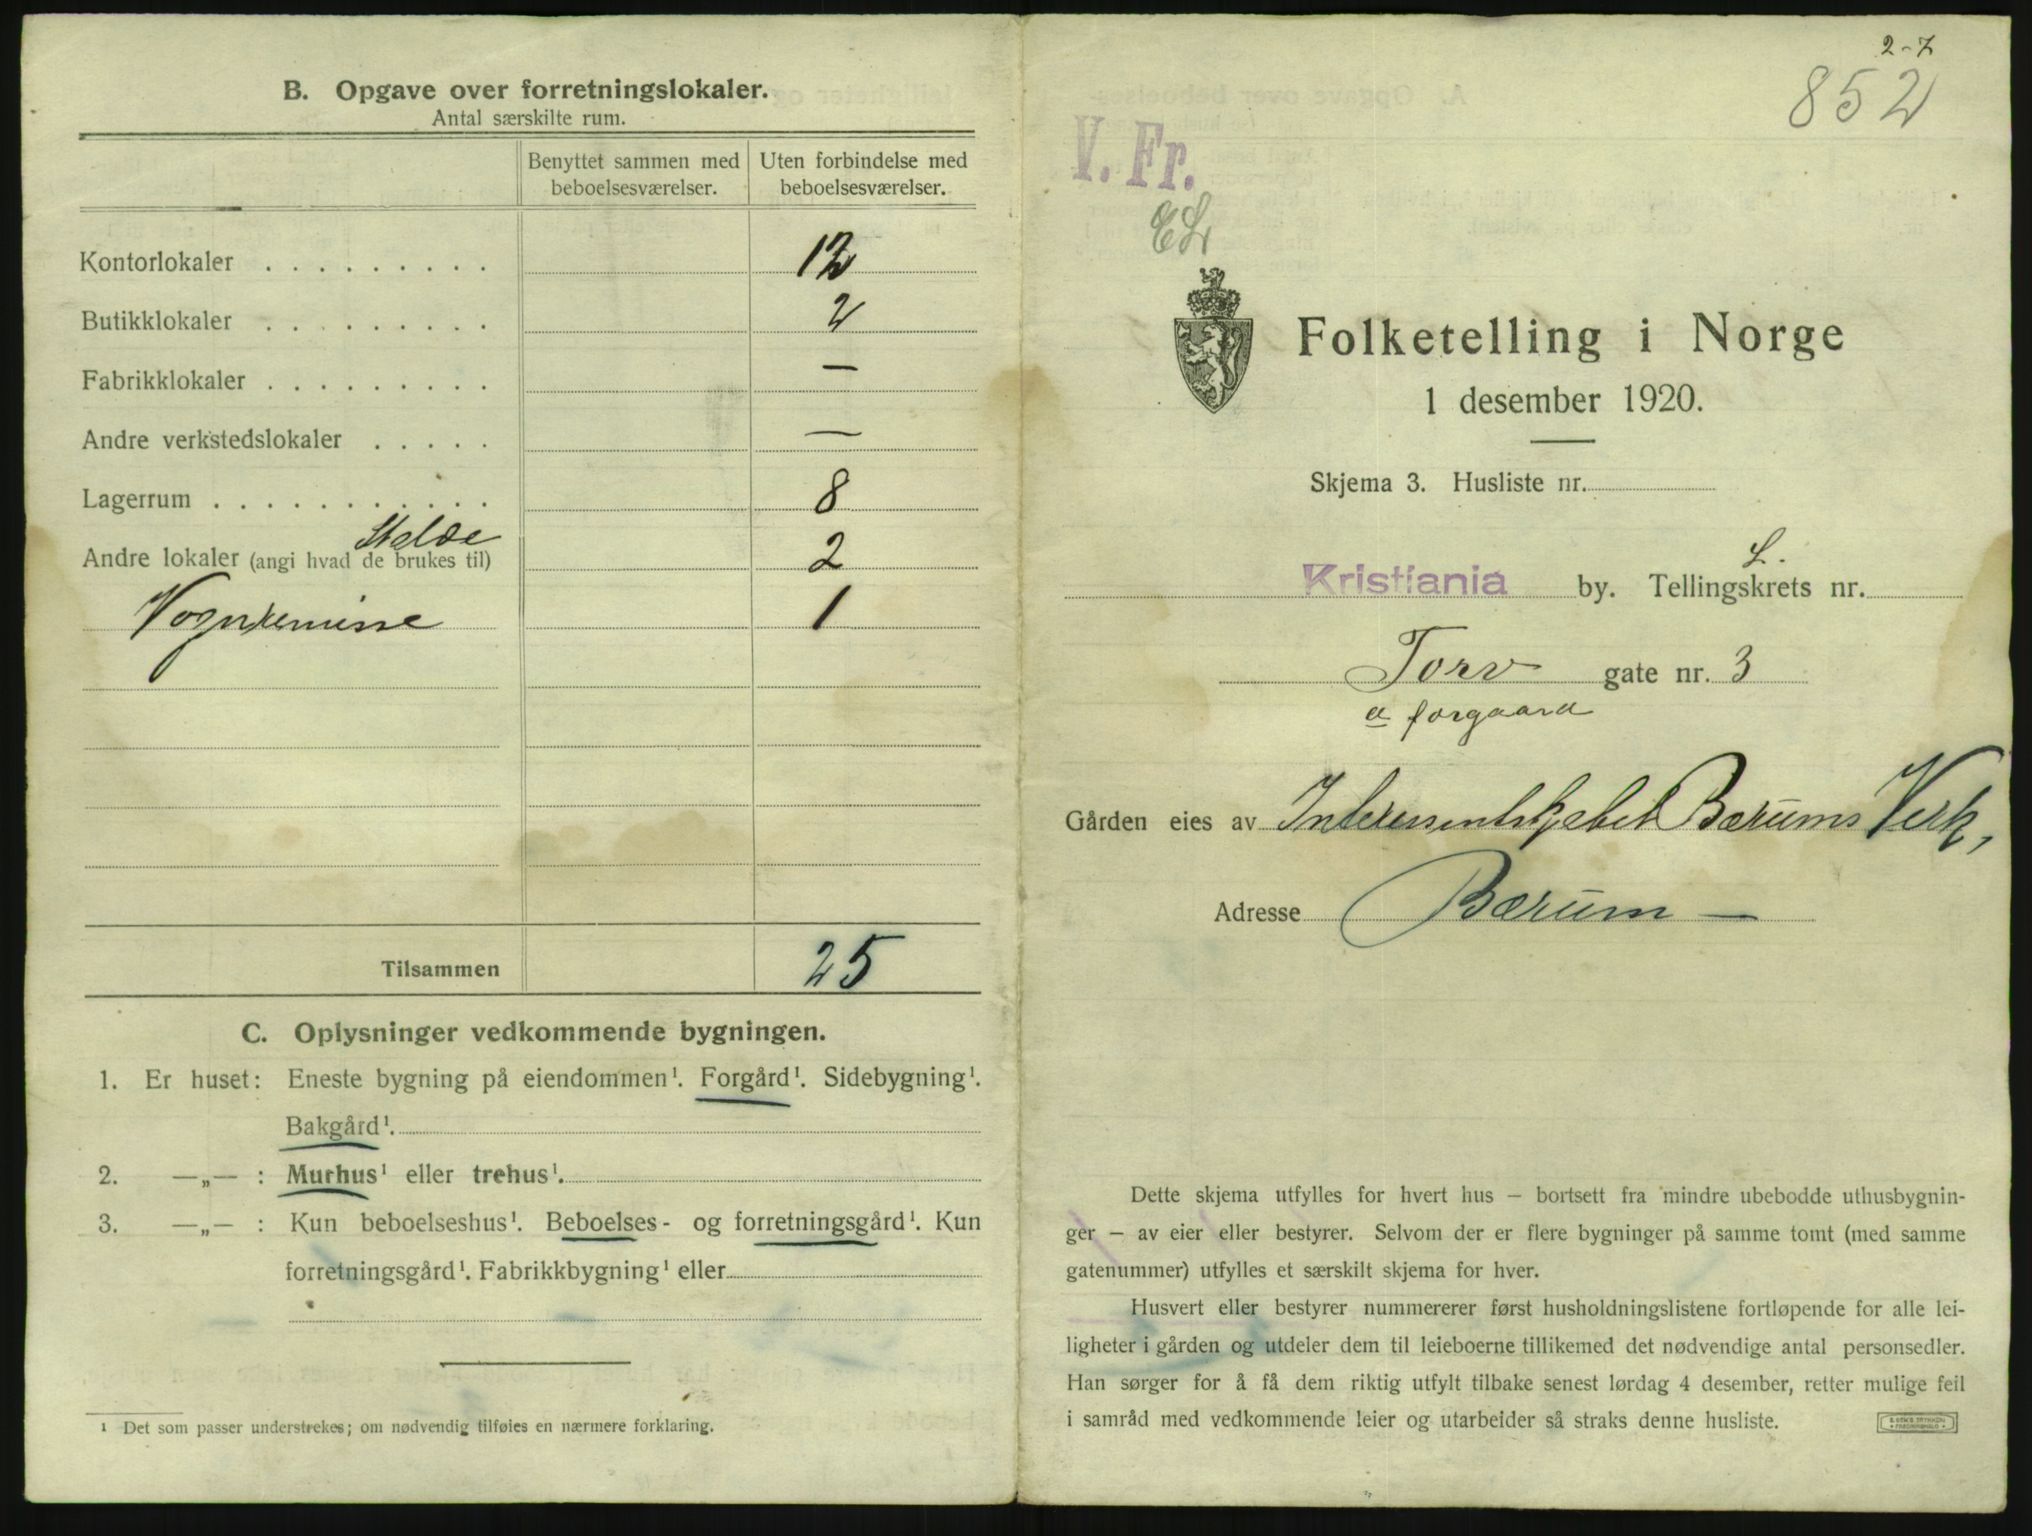 B. Opgave over forretningslokaler.
Antal særskilte rum.
Benyttet sammen med beboelsesværelser.
Uten forbindelse med beboelsesværelser.
Kontorlokaler . . . . . . . . . 12
Butikklokaler . . . . . . . . . 2
Fabrikklokaler . . . . . . . . . —
Andre verkstedslokaler . . . . . —
Lagerrum . . . . . . . . . . . 8
Stalde
Andre lokaler (angi hvad de brukes til) 2
Vognremisse 1
Tilsammen 25
C. Oplysninger vedkommende bygningen.
1. Er huset: Eneste bygning på eiendommen¹. Forgård¹. Sidebygning¹.
Bakgård¹.
2. —„— : Murhus¹ eller trehus¹.
3. —„— : Kun beboelseshus¹. Beboelses- og forretningsgård¹. Kun
forretningsgård¹. Fabrikkbygning¹ eller
¹ Det som passer understrekes; om nødvendig tilføies en nærmere forklaring.
2-7
852
V. Fr.
Folketelling i Norge
1 desember 1920.
Skjema 3. Husliste nr.
L.
Kristiania by. Tellingskrets nr.
Torv gate nr. 3
a forgaard
Gården eies av Interessentskabet Bærums Verk,
Adresse Bærum —
Dette skjema utfylles for hvert hus – bortsett fra mindre ubebodde uthusbygnin-
ger – av eier eller bestyrer. Selvom der er flere bygninger på samme tomt (med samme
gatenummer) utfylles et særskilt skjema for hver.
Husvert eller bestyrer nummererer først husholdningslistene fortløpende for alle lei-
ligheter i gården og utdeler dem til leieboerne tillikemed det nødvendige antal personsedler.
Han sørger for å få dem riktig utfylt tilbake senest lørdag 4 desember, retter mulige feil
i samråd med vedkommende leier og utarbeider så straks denne husliste.